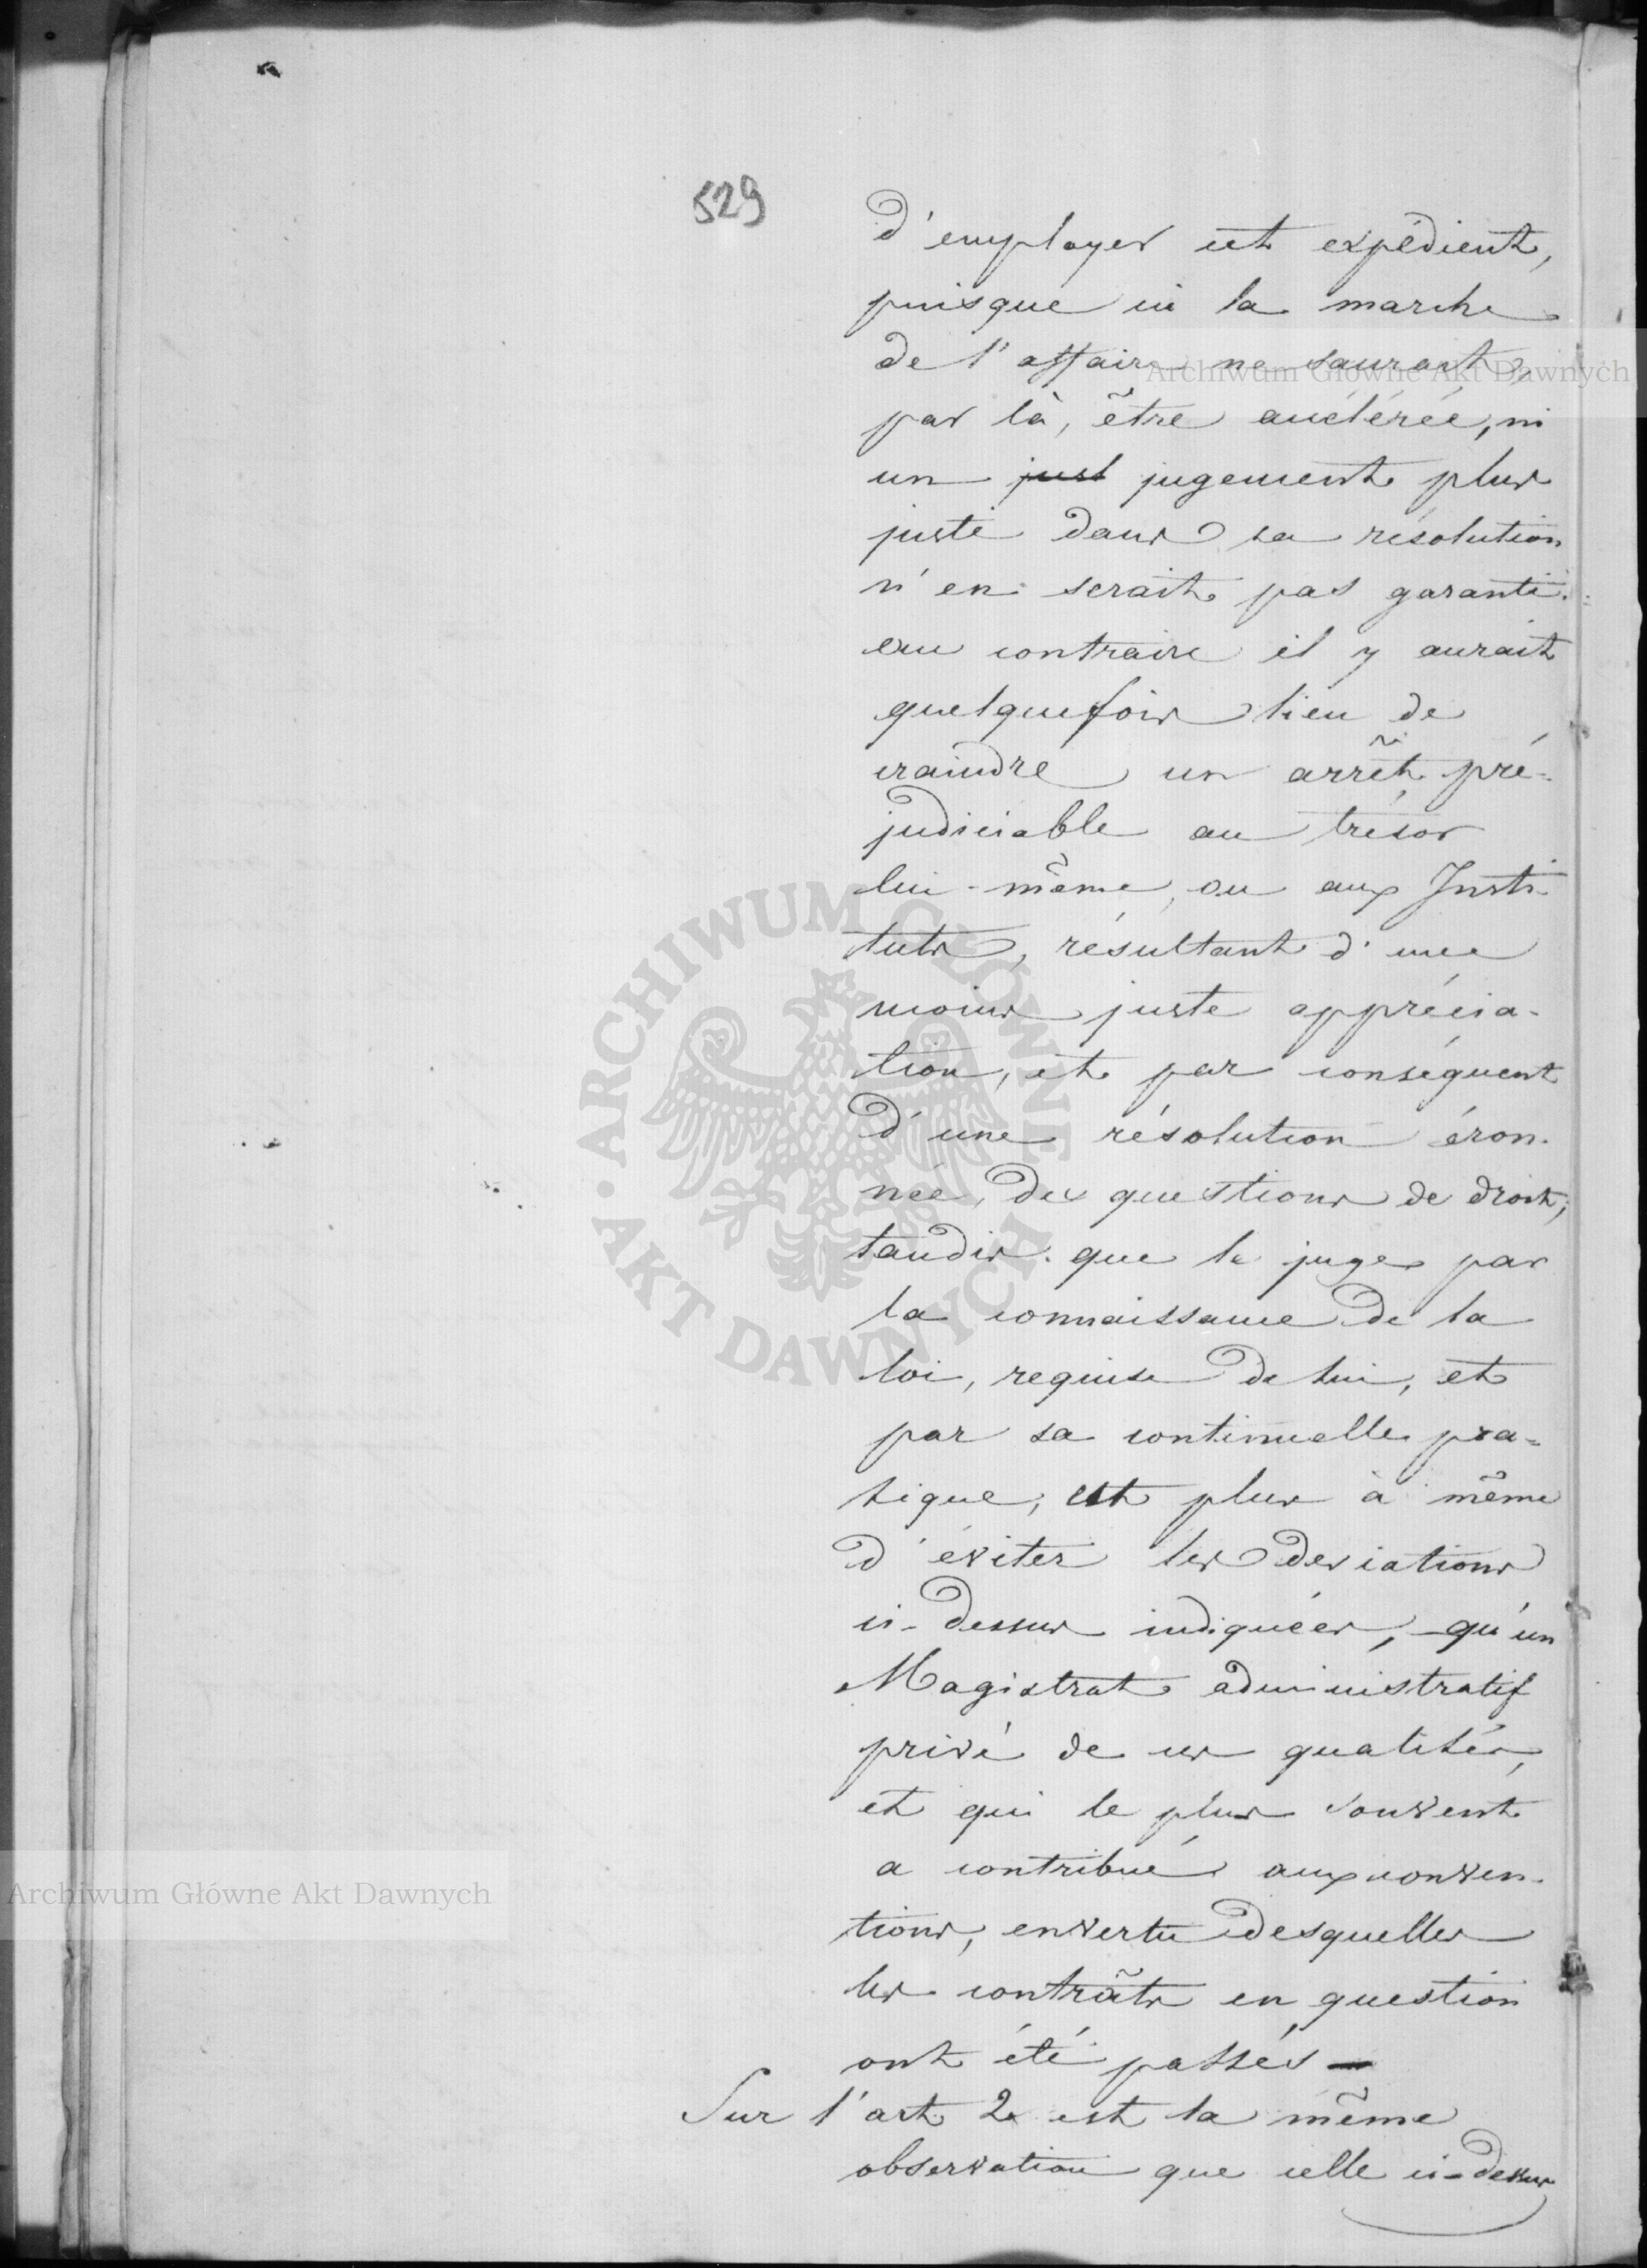 529
d'employer cet expédient,
puisque ici la marche
de l'affaire ne saurait,
par là, être accélérée, ni
un just jugement plus
juste dans sa résolution
n'en serait pas garanti.
au contraire il y aurait
quelquefois lieu de
craindre un arrêt pré-
judiciable au trésor
lui-même, ou aux Insti-
tuts, résultant d'une
moins juste apprécia-
tion, et par conséquent
d'une résolution éron-
née, des questions de droit,
tandis que le juge par
la connaissance de la
loi, requise de lui, et
par sa continuelle pra-
tique, est plus à même
d'éviter les deviations
ci-dessus indiquées, qu'un
Magistrat administratif
privé de ces qualités,
et qui le plus souvent
a contribué aux conven-
tions, en vertu desquelles
les contrâts en question
ont été passés —
Sur l'art 2 est la même
observation que celle ci-dessus
Archiwum Główne Akt Dawnych
ARCHIWUM GŁÓWNE
AKT DAWNYCH
Archiwum Główne Akt Dawnych